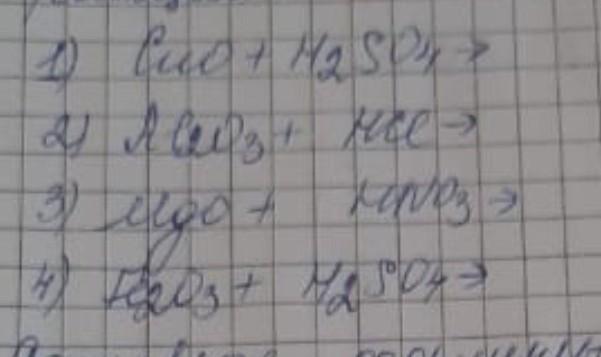 1) CuO + H2SO4 →
2) Al2O3 + HCl →
3) MgO + HNO3 →
4) Fe2O3 + H2SO4 →